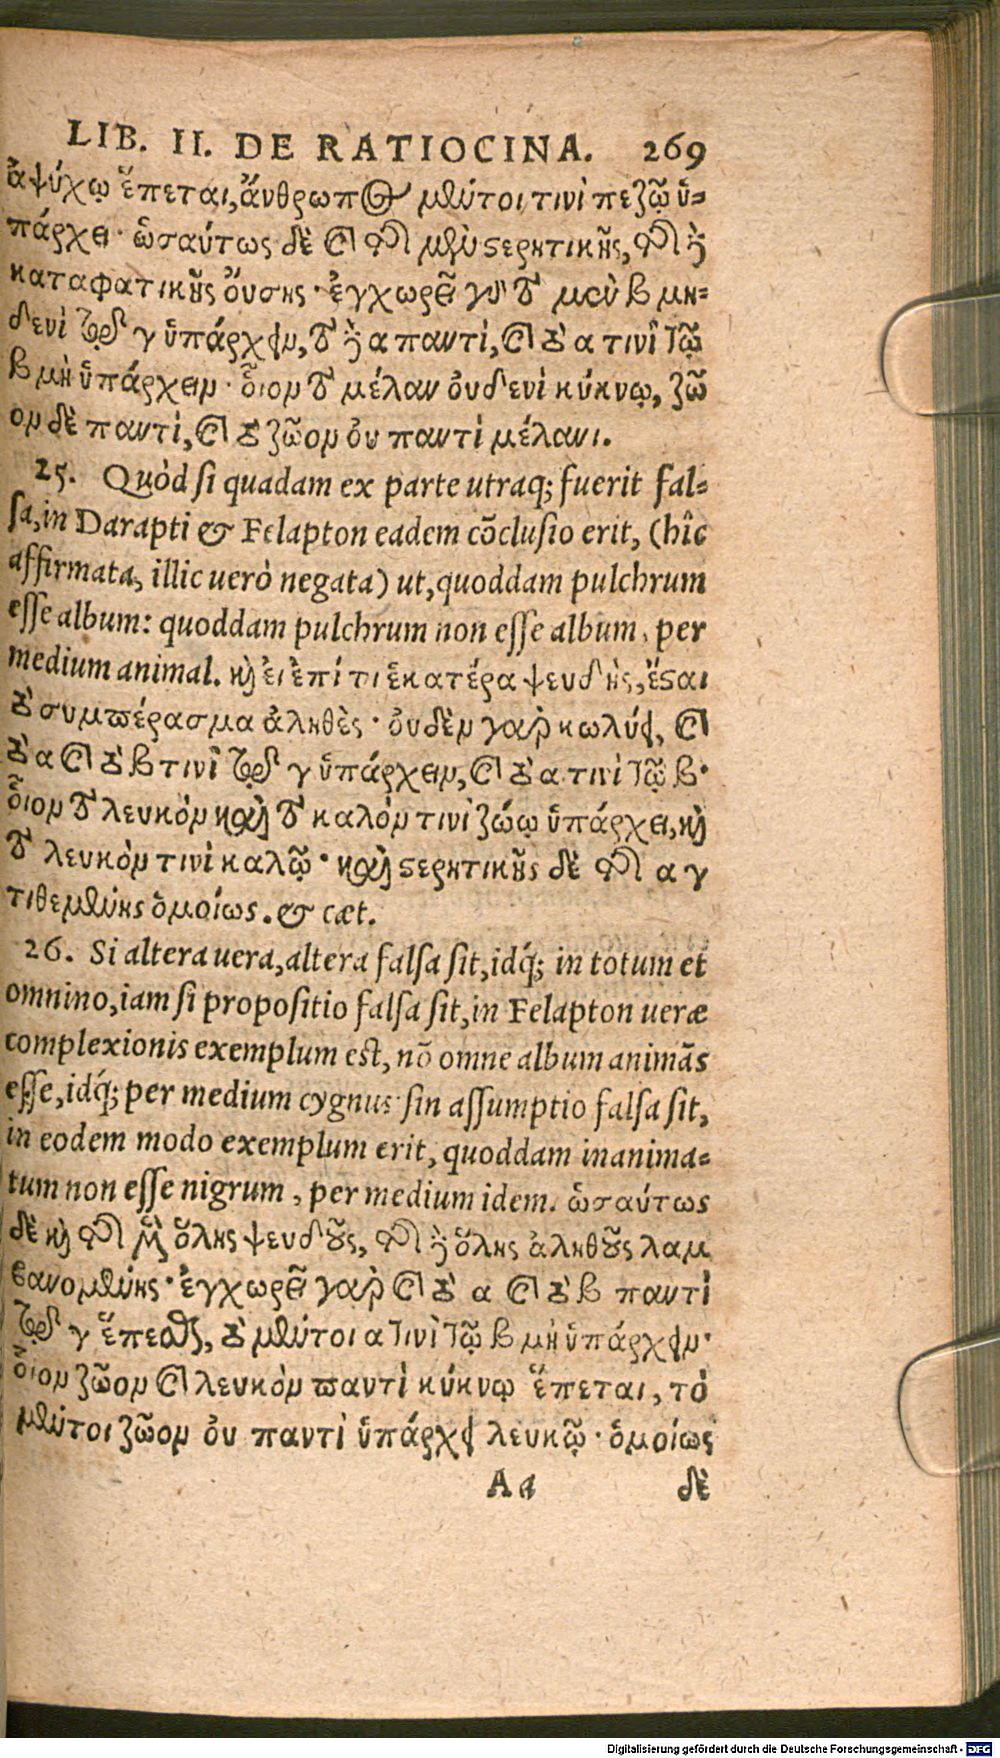 LIB. II. DE RATIOCINA. 269
ἀψύχῳ ἕπεται, ἄνθρωπος μέντοι τινὶ πεζῷ ὑ-
πάρχει· ὡσαύτως δὲ καὶ τῆς μὲν στερητικῆς, τῆς δὲ
καταφατικῆς οὔσης· ἐγχωρεῖ γὰρ τὸ μὲν β μη-
δενὶ τῷ γ ὑπάρχειν, τὸ δὲ α παντὶ, καὶ τὸ α τινὶ τῷ
β μὴ ὑπάρχειν· οἷον τὸ μέλαν οὐδενὶ κύκνῳ, ζῶ
ον δὲ παντὶ, καὶ τὸ ζῶον οὐ παντὶ μέλανι.
25. Quòd si quadam ex parte utraq; fuerit fal-
sa, in Darapti & Felapton eadem cõclusio erit, (hîc
affirmata, illic uerò negata) ut, quoddam pulchrum
esse album: quoddam pulchrum non esse album, per
medium animal. καὶ εἰ ἐπί τι ἑκατέρα ψευδὴς, ἔσται
τὸ συμπέρασμα ἀληθὲς· οὐδὲν γὰρ κωλύει, καὶ
τὸ α καὶ τὸ β τινὶ τῷ γ ὑπάρχειν, καὶ τὸ α τινὶ τῷ β·
οἷον τὸ λευκὸν καὶ τὸ καλὸν τινὶ ζώῳ ὑπάρχει, καὶ
τὸ λευκὸν τινὶ καλῷ· καὶ στερητικῆς δὲ τῆς α γ
τιθεμένης ὁμοίως. & cæt.
26. Si altera uera, altera falsa sit, idq́; in totum et
omnino, iam si propositio falsa sit, in Felapton ueræ
complexionis exemplum est, nõ omne album animãs
esse, idq́; per medium cygnus: sin assumptio falsa sit,
in eodem modo exemplum erit, quoddam inanima-
tum non esse nigrum, per medium idem. ὡσαύτως
δὲ καὶ τῆς μὲν ὅλης ψευδοῦς, τῆς δὲ ὅλης ἀληθοῦς λαμ
βανομένης· ἐγχωρεῖ γὰρ καὶ τὸ α καὶ τὸ β παντὶ
τῷ γ ἕπεσθαι, τὸ μέντοι α τινὶ τῷ β μὴ ὑπάρχειν·
οἷον ζῶον καὶ λευκὸν παντὶ κύκνῳ ἕπεται, τὸ
μέντοι ζῶον οὐ παντὶ ὑπάρχει λευκῷ· ὁμοίως
Aa δὲ
Digitalisierung gefördert durch die Deutsche Forschungsgemeinschaft - DFG